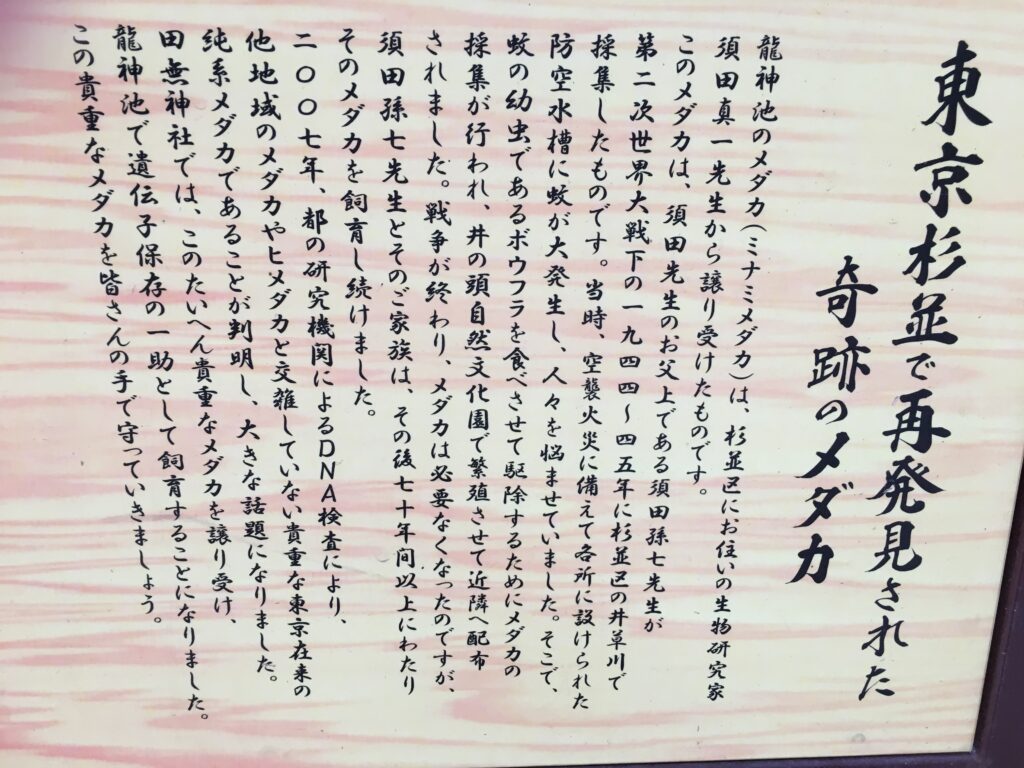 東京杉並で再発見された
奇跡のメダカ
龍神池のメダカ(ミナミメダカ)は、杉並区にお住いの生物研究家
須田真一先生から譲り受けたものです。
このメダカは、須田先生のお父上である須田孫七先生が
第二次世界大戦下の一九四四～四五年に杉並区の井草川で
採集したものです。当時、空襲火災に備えて各所に設けられた
防空水槽に蚊が大発生し、人々を悩ませていました。そこで、
蚊の幼虫であるボウフラを食べさせて駆除するためにメダカの
採集が行われ、井の頭自然文化園で繁殖させて近隣へ配布
されました。戦争が終わり、メダカは必要なくなったのですが、
須田孫七先生とそのご家族は、その後七十年間以上にわたり
そのメダカを飼育し続けました。
二〇〇七年、都の研究機関によるDNA検査により、
他地域のメダカやヒメダカと交雑していない貴重な東京在来の
純系メダカであることが判明し、大きな話題になりました。
田無神社では、このたいへん貴重なメダカを譲り受け、
龍神池で遺伝子保存の一助として飼育することになりました。
この貴重なメダカを皆さんの手で守っていきましょう。